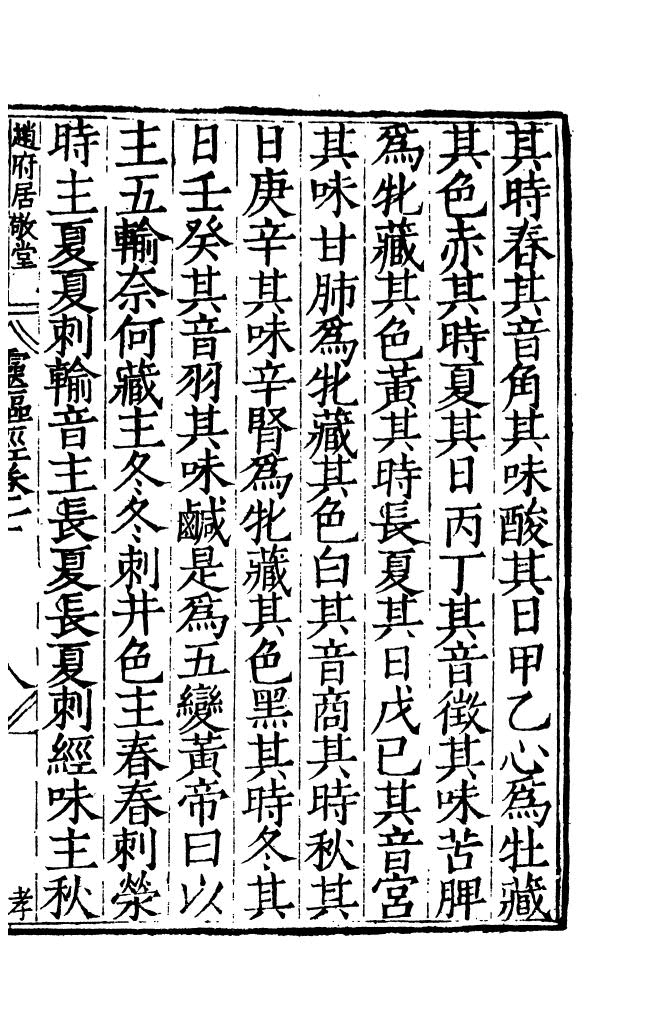 其時春其音角其味酸其日甲乙心爲牡藏
其色赤其時夏其日丙丁其音徵其味苦脾
爲牝藏其色黃其時長夏其日戊已其音宮
其味甘肺爲牝藏其色白其音商其時秋其
日庚辛其味辛腎爲牝藏其色黑其時冬其
日壬癸其音羽其味鹹是爲五變黃帝曰以
主五輸奈何藏主冬冬刺井色主春春刺滎
時主夏夏刺輸音主長夏長夏刺經味主秋
趙府居敬堂
靈樞經卷七
孝